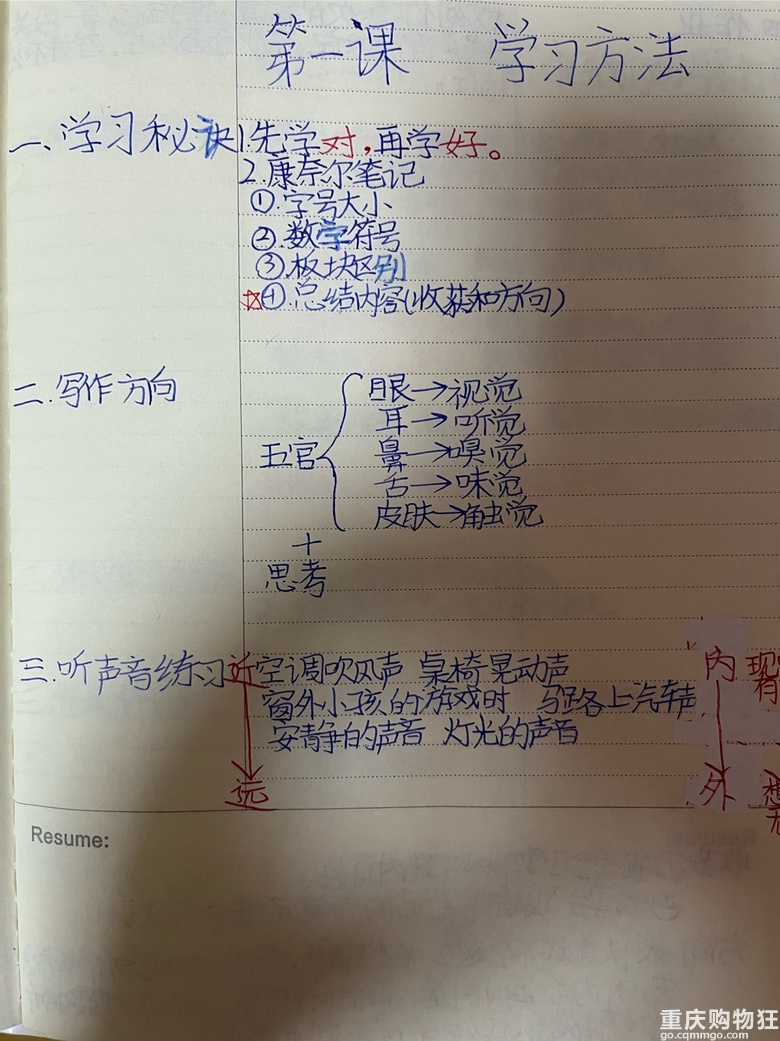 第一课 学习方法
一、学习秘诀 1.先学对，再学好。
2.康奈尔笔记
①.字号大小
②.数字符号
③.板块区别
☆④.总结内容(收获和方向)
二.写作方向
眼→视觉
耳→听觉
五官 鼻→嗅觉
舌→味觉
皮肤→触觉
+
思考
三.听声音练习 近 空调吹风声 桌椅晃动声 内 现
窗外小孩的游戏时 马路各上汽车声 有
安静的声音 灯光的声音
远 外 想
无
Resume:
重庆购物狂
go.cqmmgo.com